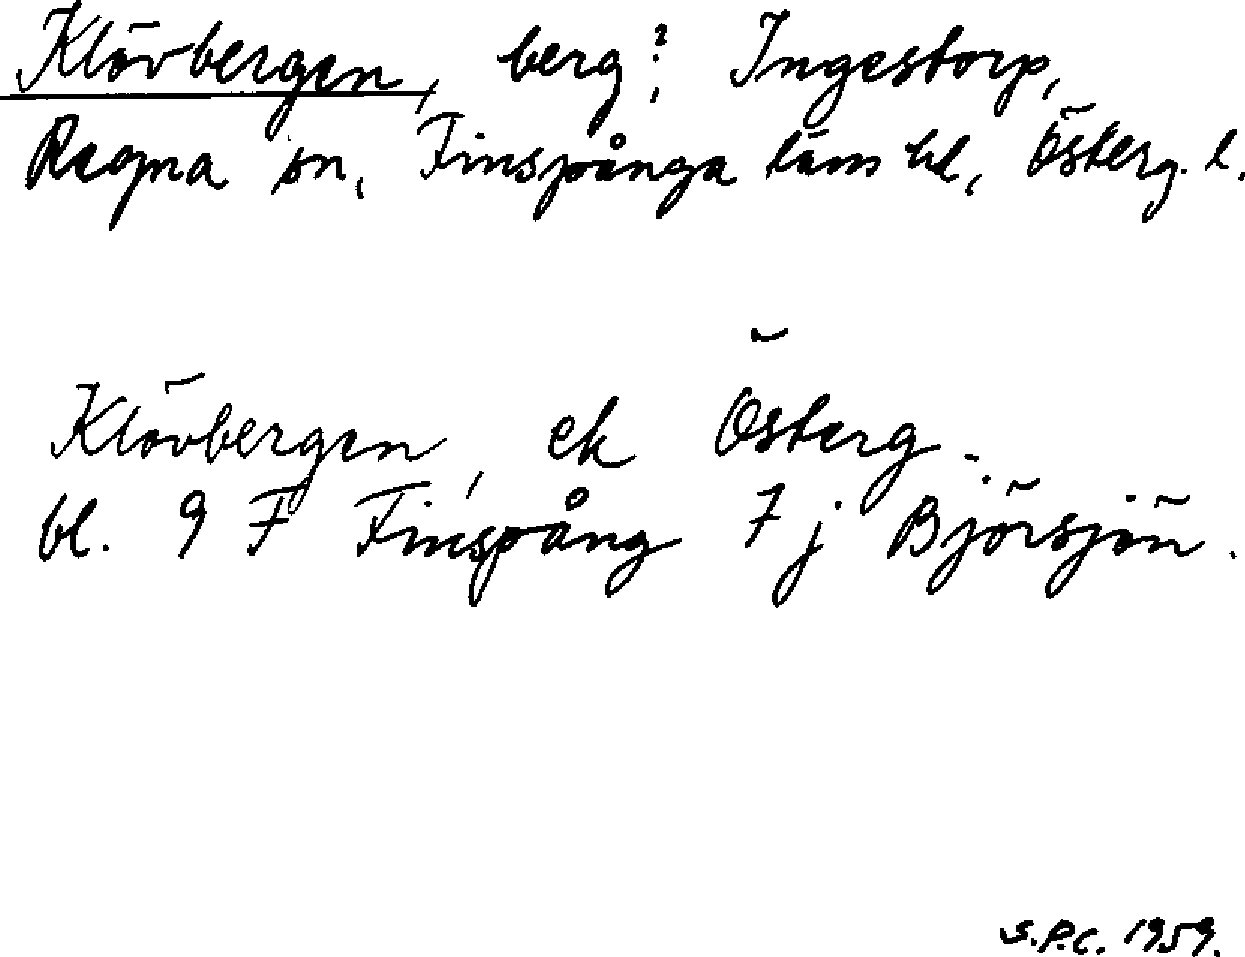 Klövbergen, berg?, Ingestorp,
Regna sn, Finspånga läns hd, Österg. l.
Klövbergen, ek Österg.
bl. 9 F Finspång 7 j Björsjön.
S.P.C. 1959.